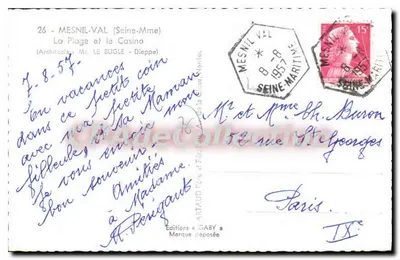 26 - MESNIL-VAL (Seine-Mme)
La Plage et le Casino
(Architecte Mr. LE BUGLE - Dieppe)
7-8-57-
En vacances
dans ce petit coin
avec ma petite
filleule et sa Maman
Je vous envoie mon
bon souvenir
Amitiés
à Madame.
MESNIL-VAL
8-8
1957
SEINE-MARITIME
MESNIL-VAL
8-8
1957
SEINE-MARITIME
15F
Mr et Mme Ch. Buron
52 rue St Georges
Paris.
IXe
Editions « GABY »
Marque déposée